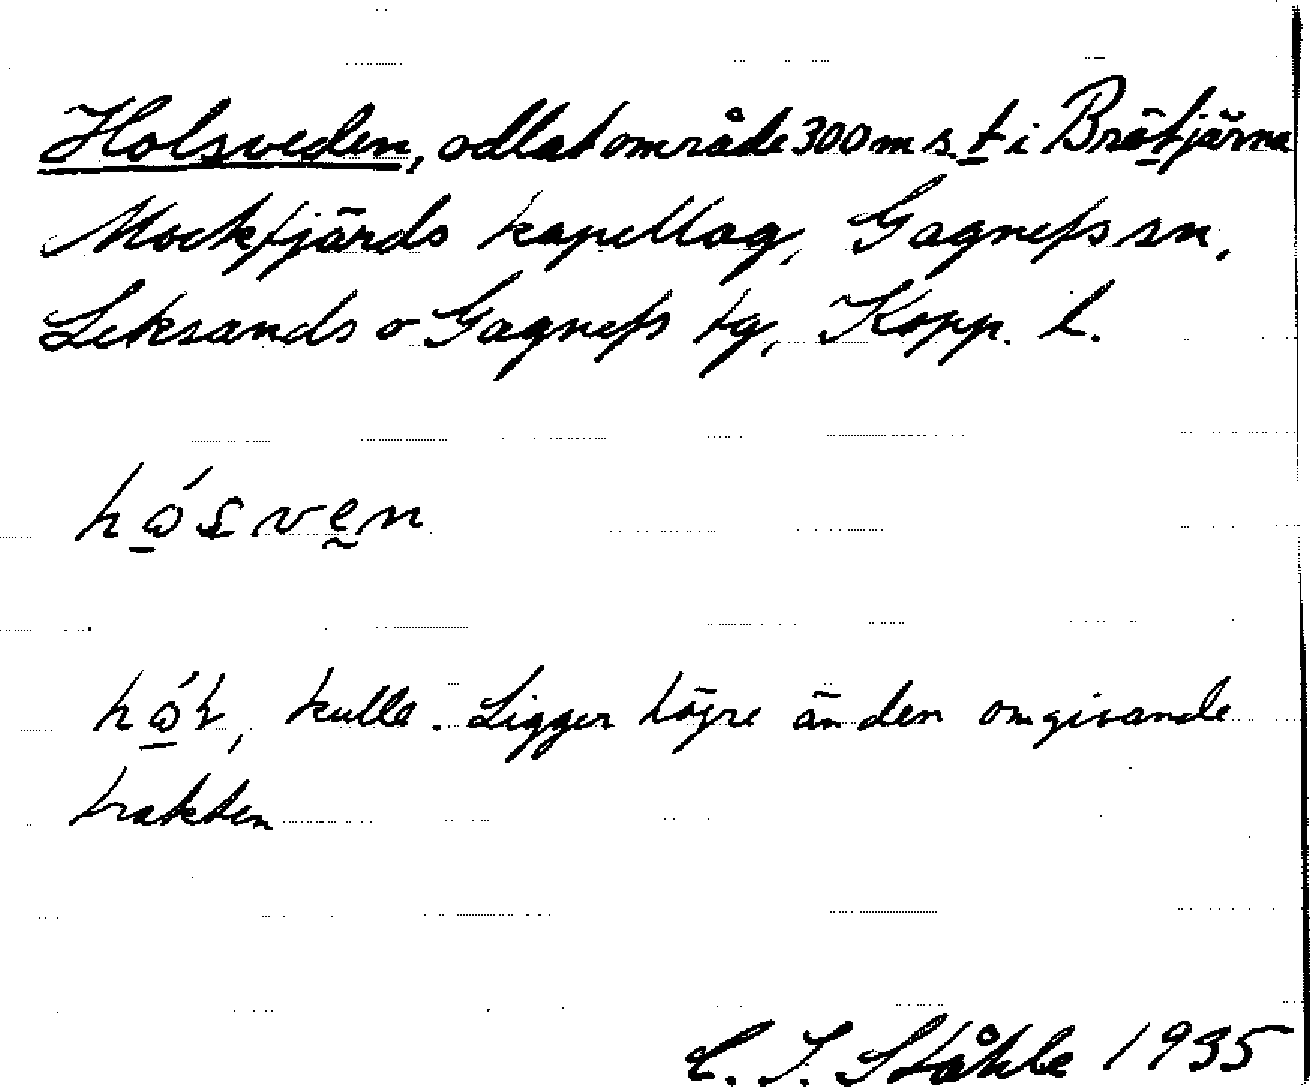 Holsveden, odlat område 300 m s. t i Brötjärna
Mockfjärds kapellag, Gagnefs sn,
Leksands o Gagnefs tg, Kopp. l.
hǫ́sven
hǫ́l, kulle. Ligger högre än den omgivande
trakten
C. I. Ståhle 1935